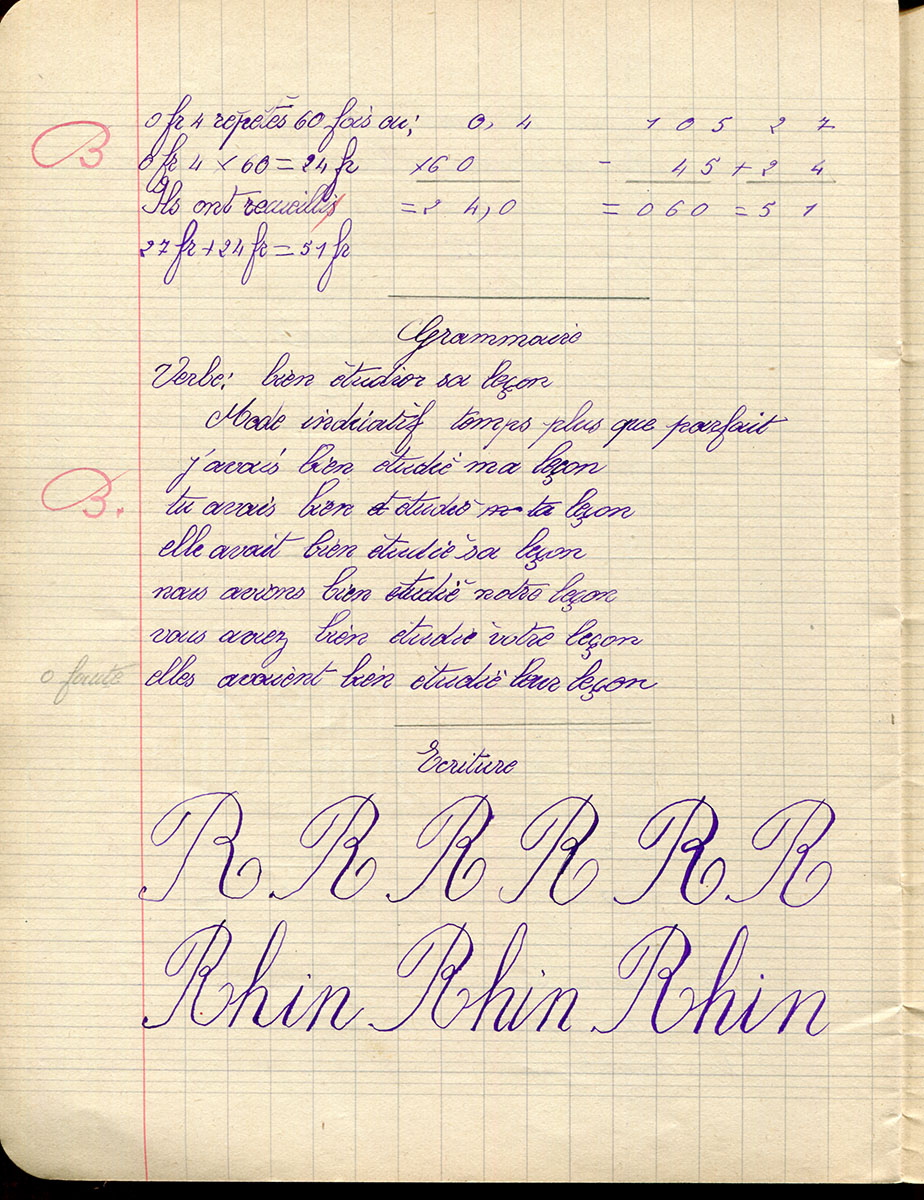 0 fr 4 répétés 60 fois ou; 0,4 105 27
B
0 fr 4 × 60 = 24 fr ×60 - 45 + 24
Ils ont recueillis = 24,0 = 060 = 51
27 fr + 24 fr = 51 fr
Grammaire
Verbe: bien étudier sa leçon
Mode indicatif temps plus que parfait
j'avais bien étudié ma leçon
B.
tu avais bien étudié ta leçon
elle avait bien étudié sa leçon
nous avions bien étudié notre leçon
vous aviez bien étudié votre leçon
0 faute
elles avaient bien étudié leur leçon
Ecriture
R R R R R R
Rhin Rhin Rhin